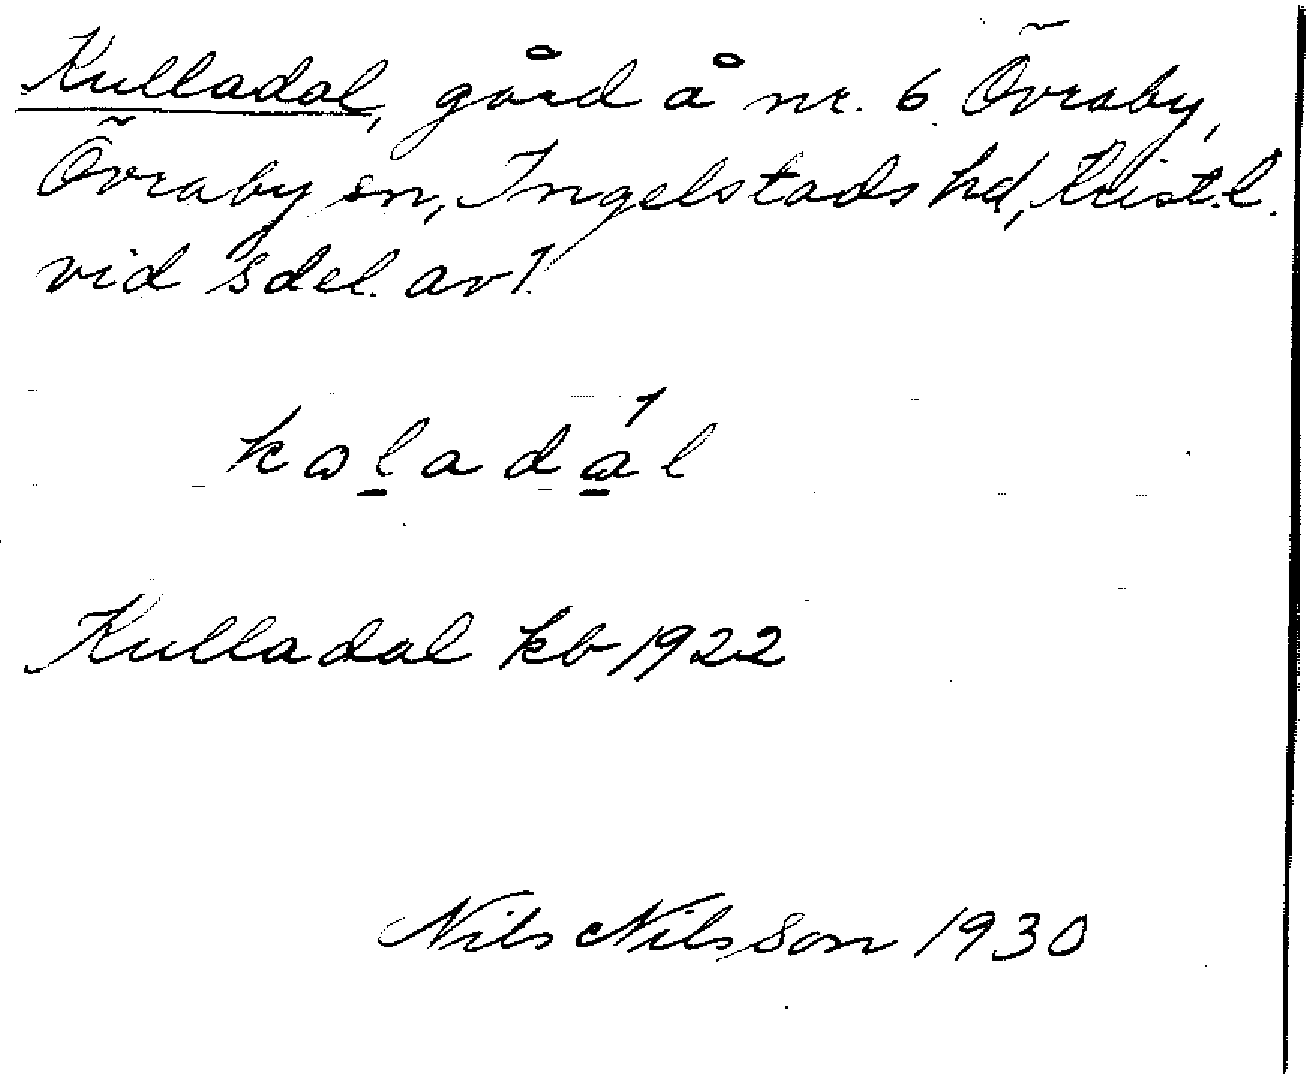 Kulladal, gård å nr. 6 Övraby,
Övraby sn, Ingelstads hd, Krist.l.
vid sdel. av 1
Kulladal kb 1922
Nils Nilsson 1930